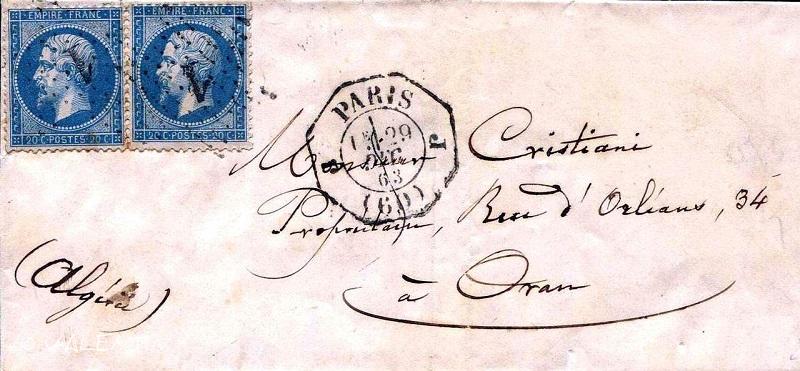 EMPIRE FRANC EMPIRE FRANC
20 C POSTES 20 C 20 C POSTES 20 C
1
PARIS
29
63
(60)
J
Monsieur Cristiani
Propriétaire, Rue d'Orléans, 34
à Oran
(Algérie)